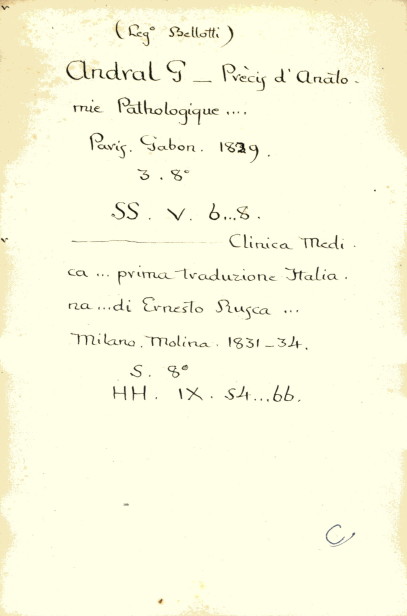 (Leg° Bellotti)
Andral G _ Prècis d'Anato-
mie Pathologique ....
Paris. Gabon. 1829.
3. 8°
SS. V. 6...8.
——— Clinica Medi-
ca ... prima traduzione Italia-
na ... di Ernesto Rusca ...
Milano, Molina. 1831-34.
5. 8°
HH. IX. 54...66.
C